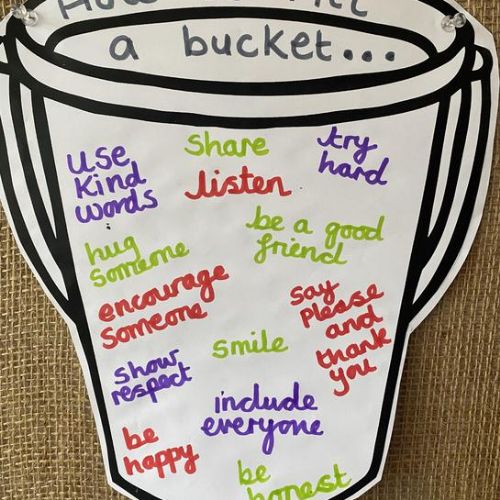 How to fill
a bucket...
use
kind
words
share
try
hard
listen
hug
someone
be a good
friend
encourage
someone
say
please
and
thank
you
smile
show
respect
include
everyone
be
happy
be
honest